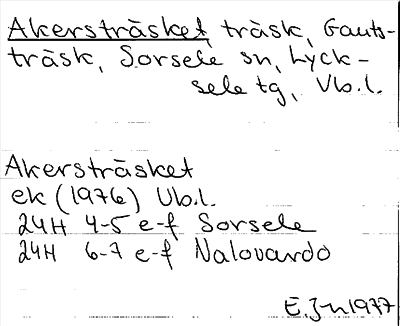 Akersträsket, träsk, Gauts-
träsk, Sorsele sn, Lyck-
sele tg, Vb.l.
Akersträsket
ek (1976) Vb.l.
24H 4-5 e-f Sorsele
24H 6-7 e-f Nalovardo
E.Jn 1977